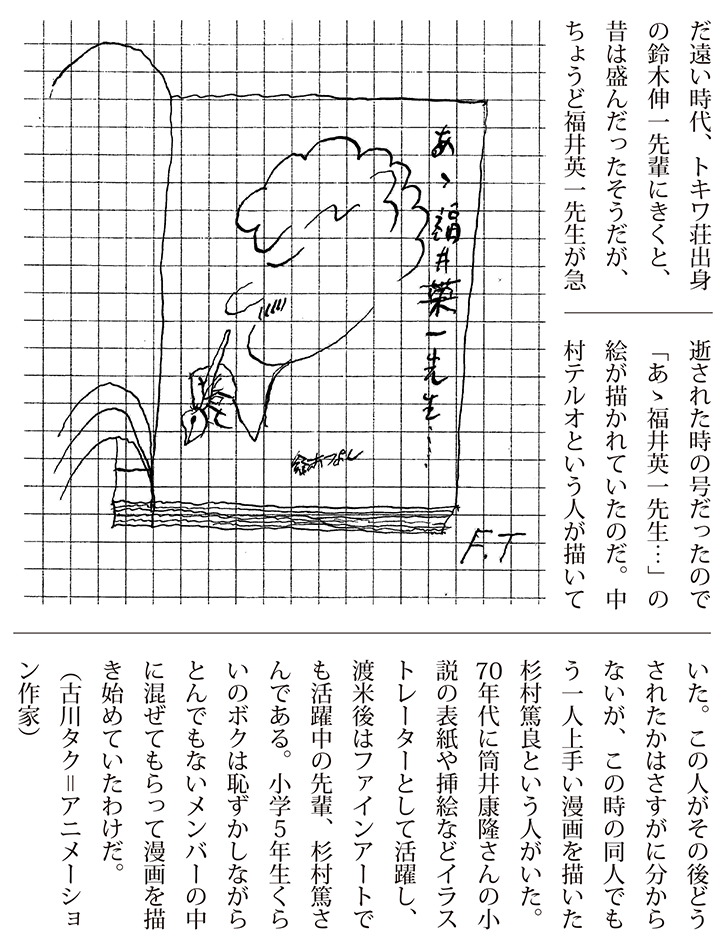 だ遠い時代、トキワ荘出身
の鈴木伸一先輩にきくと、
昔は盛んだったそうだが、
ちょうど福井英一先生が急
逝された時の号だったので
「あゝ福井英一先生…」の
絵が描かれていたのだ。中
村テルオという人が描いて
いた。この人がその後どう
されたかはさすがに分から
ないが、この時の同人でも
う一人上手い漫画を描いた
杉村篤良という人がいた。
70年代に筒井康隆さんの小
説の表紙や挿絵などイラス
トレーターとして活躍し、
渡米後はファインアートで
も活躍中の先輩、杉村篤さ
んである。小学5年生くら
いのボクは恥ずかしながら
とんでもないメンバーの中
に混ぜてもらって漫画を描
き始めていたわけだ。
（古川タク＝アニメーショ
ン作家）
あゝ福井英一先生…
F.T